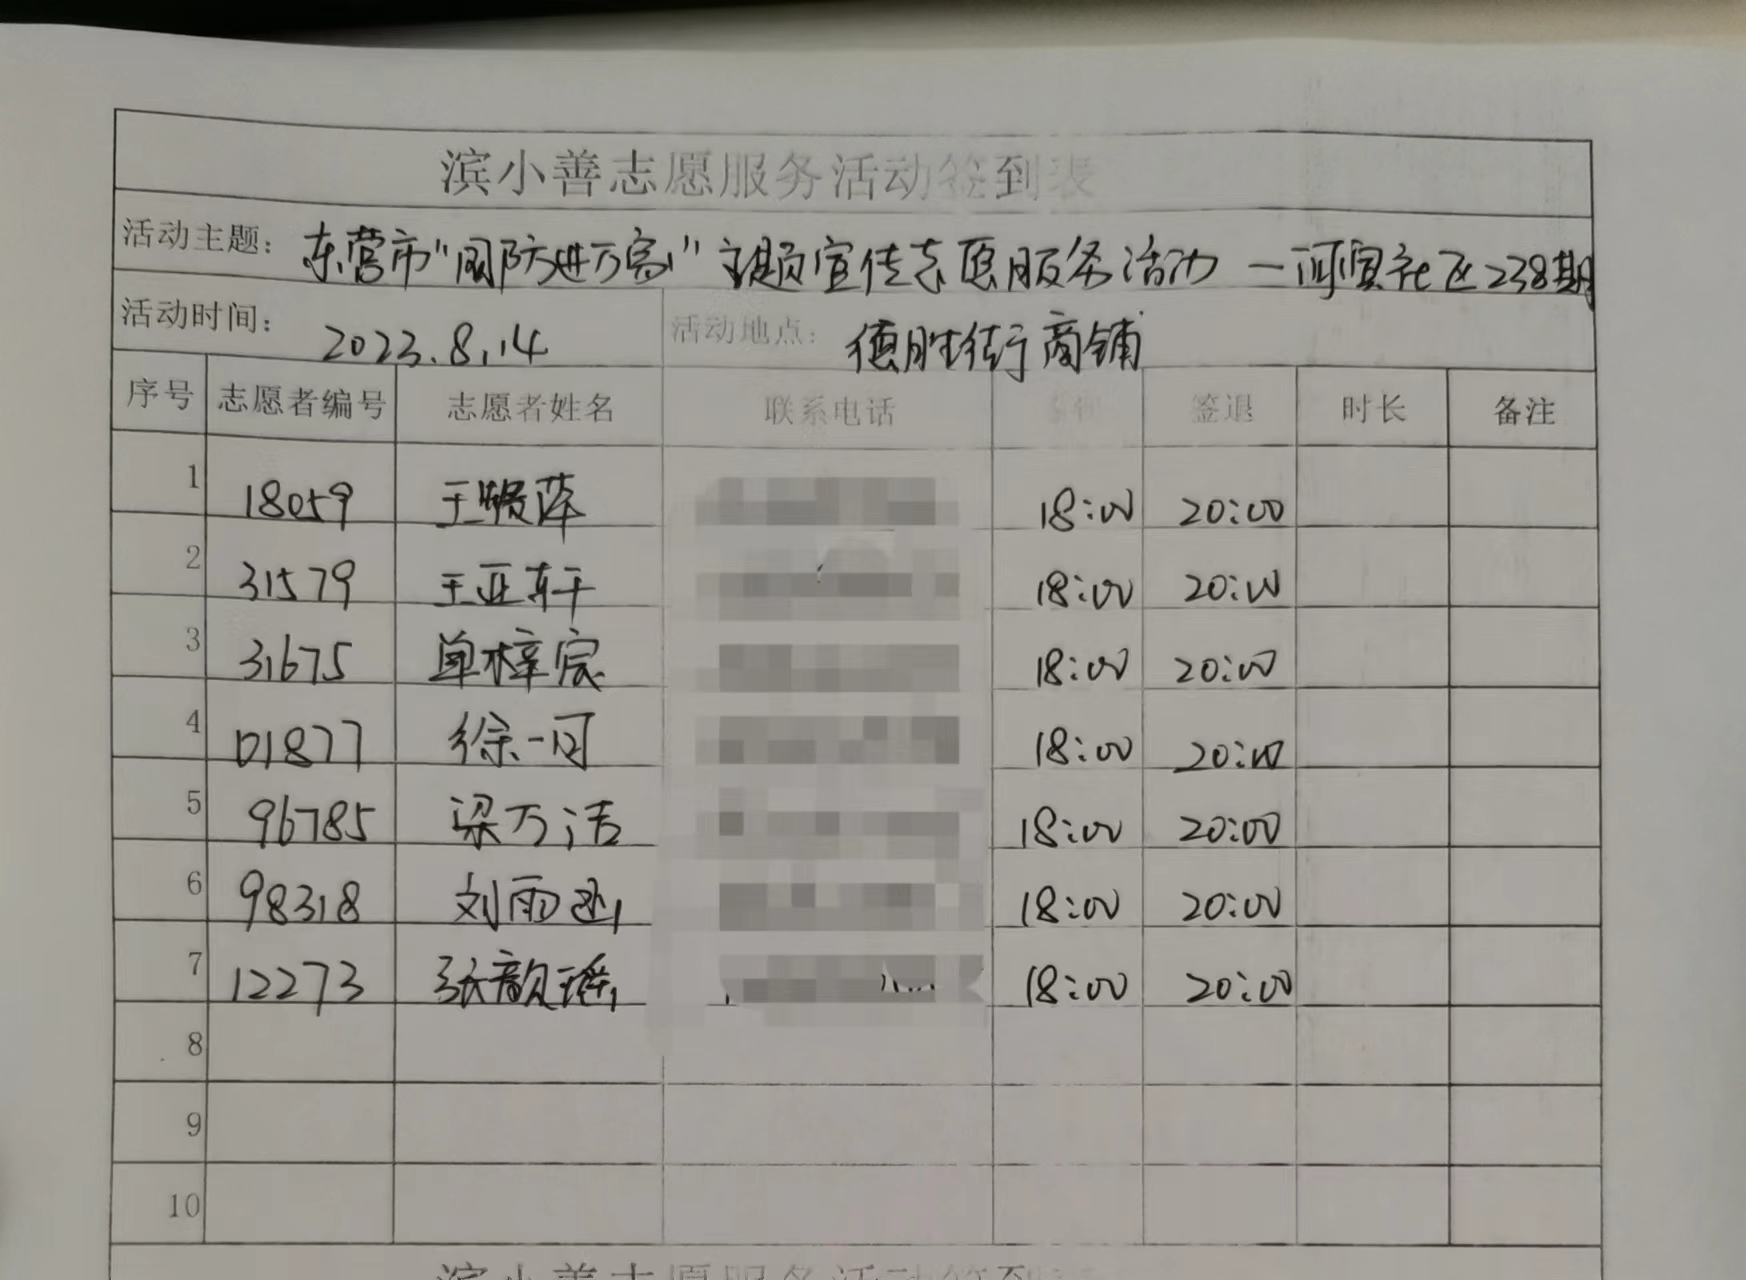 滨小善志愿服务活动签到表
活动主题: 东营市"国防进万家"主题宣传志愿服务活动 —河滨社区238期
活动时间: 2023.8.14 活动地点: 德胜街商铺
序号 志愿者编号 志愿者姓名 联系电话 签退 时长 备注
1 18059 王 萍 18:00 20:00
2 31579 王亚轩 18:00 20:00
3 31675 单梓宸 18:00 20:00
4 01877 徐一可 18:00 20:00
5 96785 梁万洁 18:00 20:00
6 98318 刘雨 18:00 20:00
7 12273 张韵瑶 18:00 20:00
8
9
10
滨小善志愿服务活动签到表